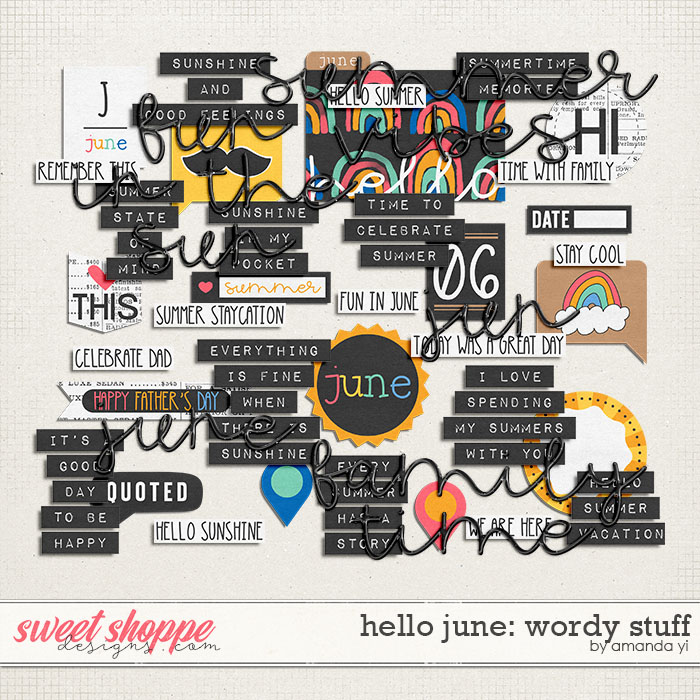 SUNSHINE
AND
GOOD FEELINGS
june
HELLO SUMMER
hello
SUMMERTIME
MEMORIES
summer
fun vibes
in the
sun
J
june
REMEMBER THIS -
HI
TIME WITH FAMILY
SUMMER
STATE
OF
MIND
SUNSHINE
IN MY
POCKET
TIME TO
CELEBRATE
SUMMER
DATE
STAY COOL
06
THIS
summer
SUMMER STAYCATION
FUN IN JUNE
jun
TODAY WAS A GREAT DAY
CELEBRATE DAD
EVERYTHING
IS FINE
WHEN
THERE IS
SUNSHINE
june
I LOVE
SPENDING
MY SUMMERS
WITH YOU
HAPPY FATHER'S DAY
june
IT'S A
GOOD
DAY
TO BE
HAPPY
QUOTED
HELLO SUNSHINE
EVERY
SUMMER
HAS A
STORY
family
time
WE ARE HERE
HELLO
SUMMER
VACATION
sweet shoppe
designs.com
hello june: wordy stuff
by amanda yi